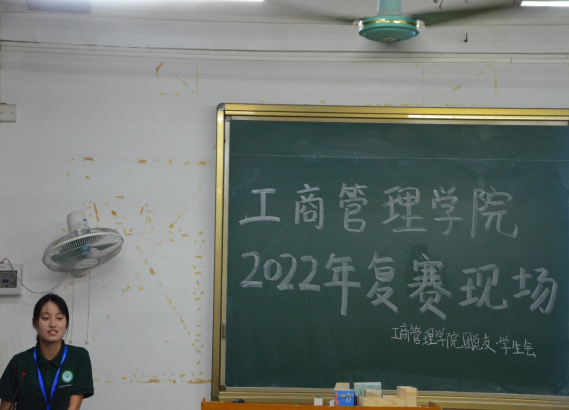 工商管理学院
2022年复赛现场
工商管理学院团总支·学生会